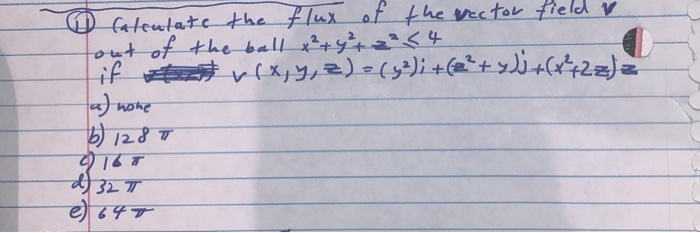 ① Calculate the flux of the vector field v
out of the ball x²+y²+z² ≤ 4
if v(x,y,z)=(y²)i+(z²+y)j+(x²+2z)z
a) none
b) 128 π
c) 16 π
d) 32 π
e) 64 π